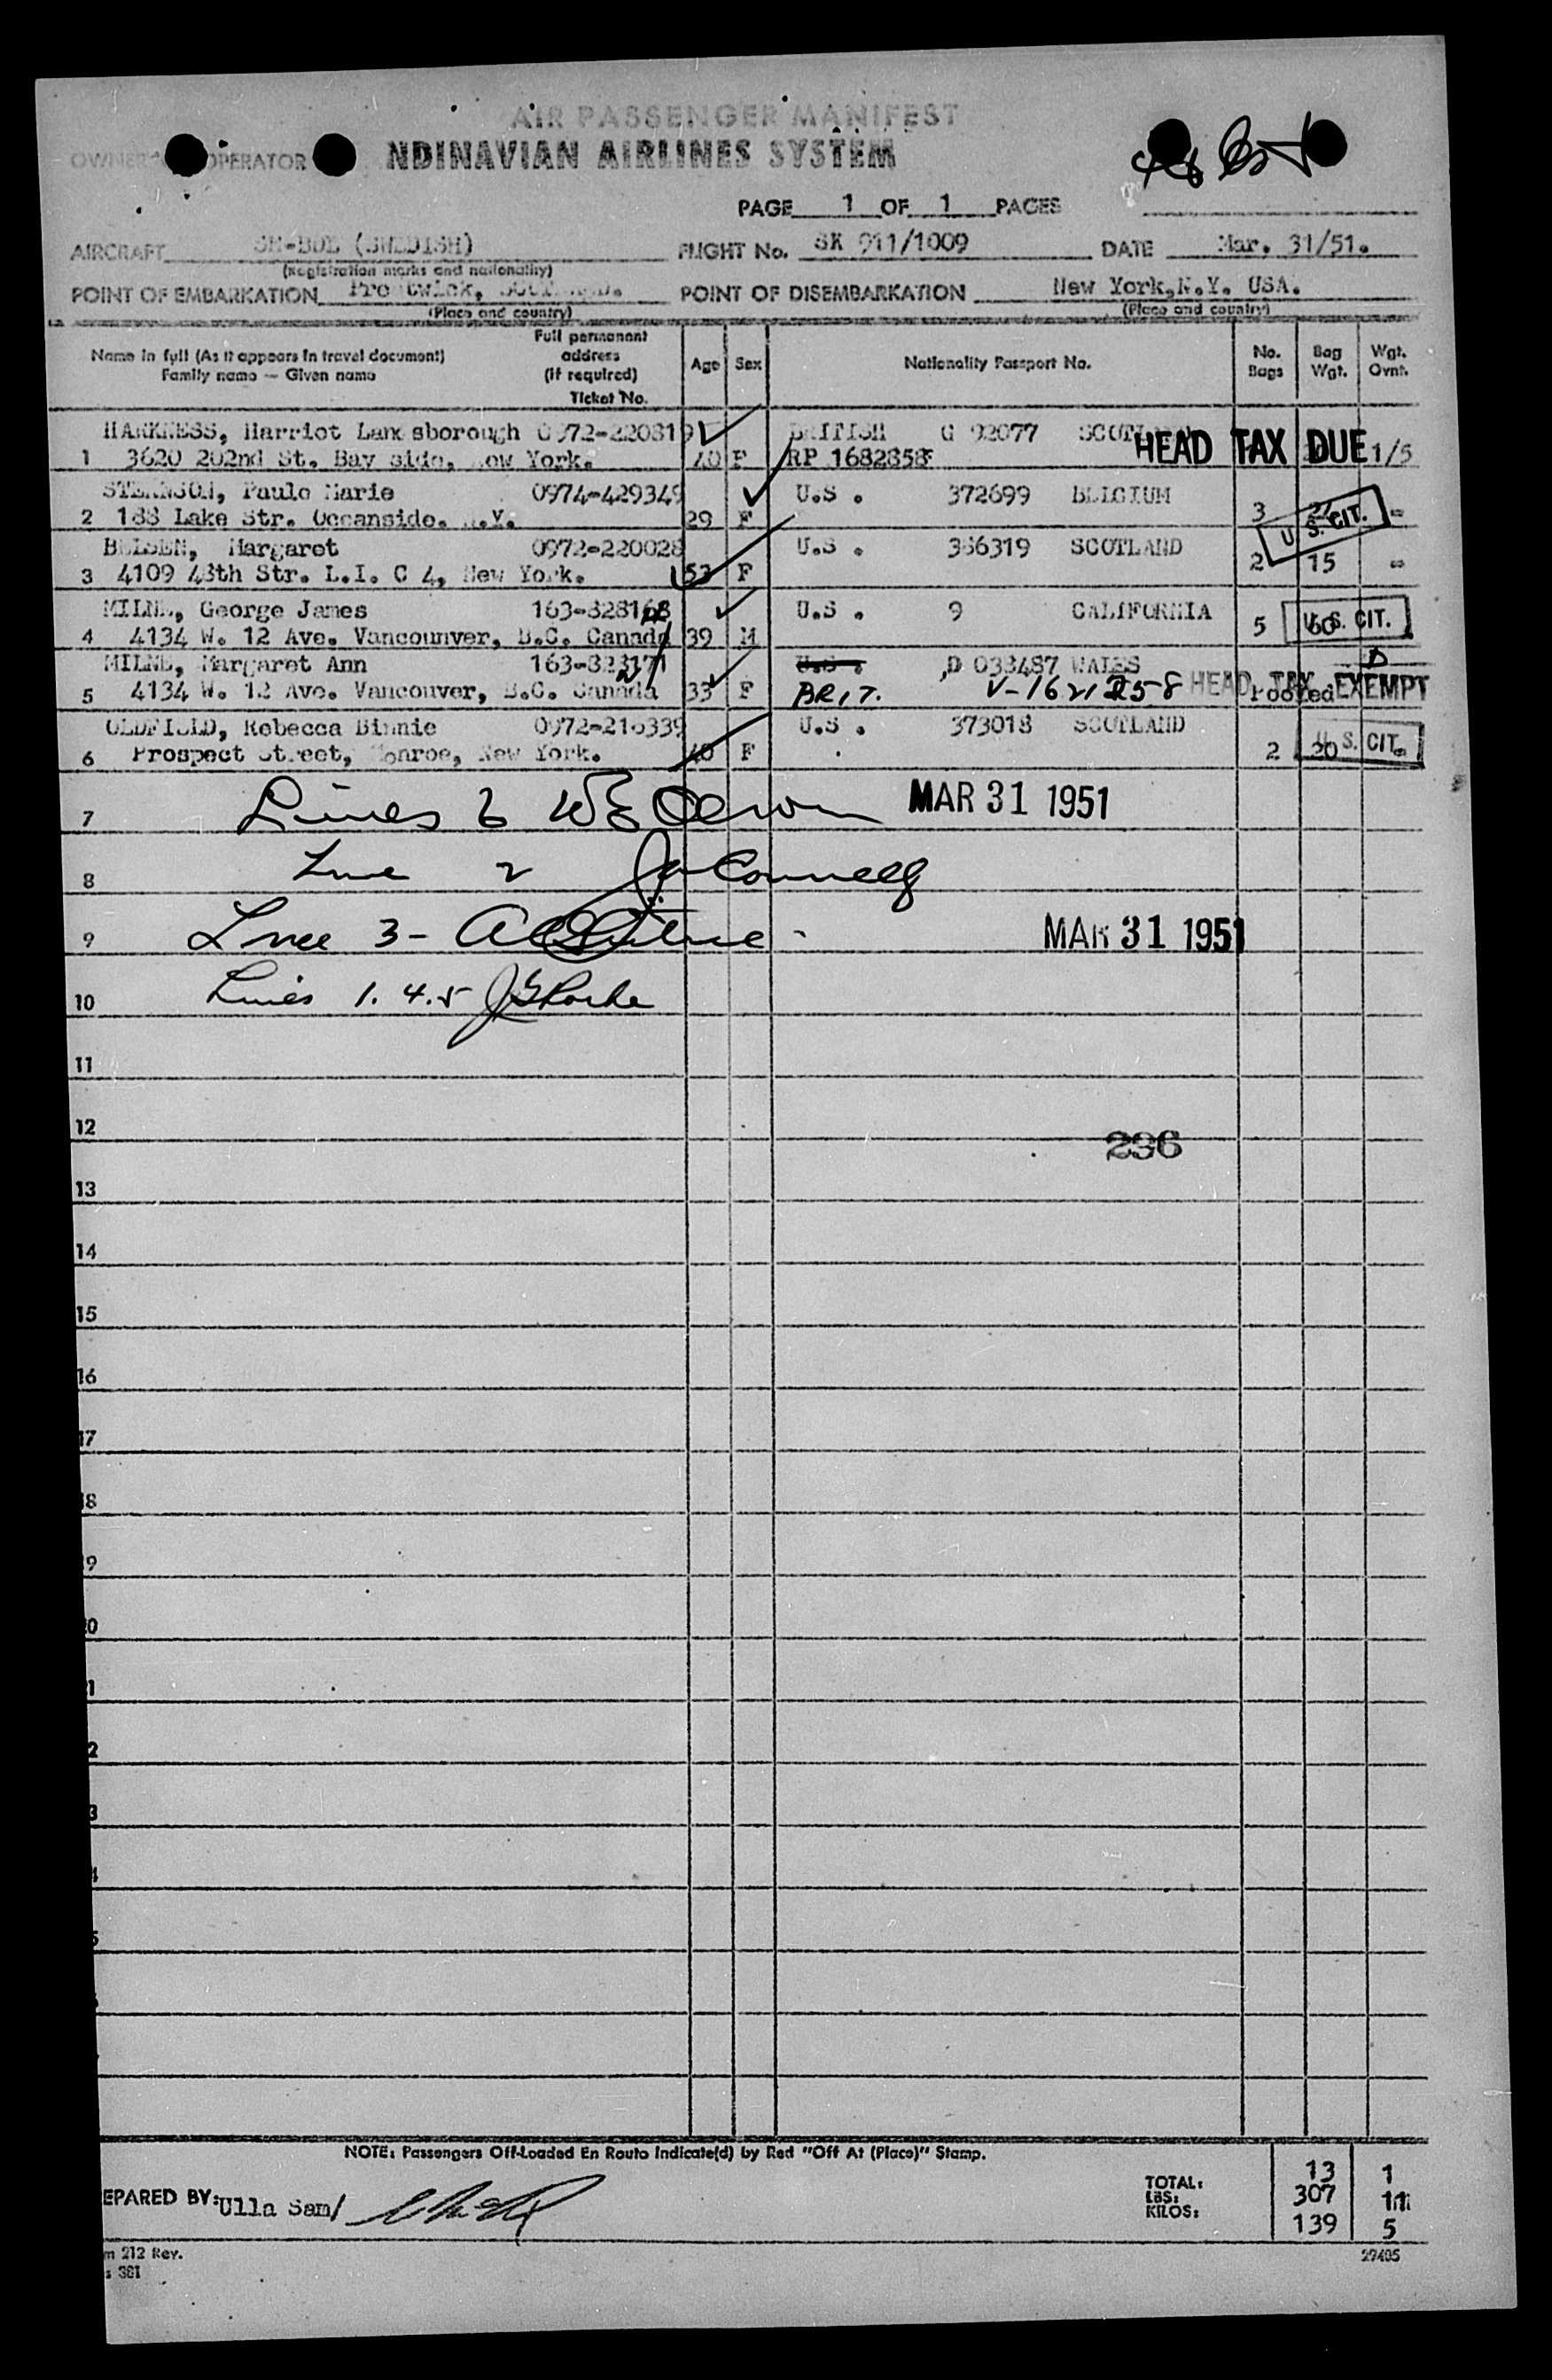 AIR PASSENGER MANIFEST
OPERATOR NDINAVIAN AIRLINES SYSTEM
PAGE 1 OF 1 PAGES
AIRCRAFT SE-BDE (SWEDISH) FLIGHT No. SK 911/1009 DATE Mar. 31/51.
(Registration marks and nationality)
POINT OF EMBARKATION POINT OF DISEMBARKATION New York,N.Y. USA.
(Place and country) (Place and country)
Name in full (As it appears in travel document) Family name — Given name Full permanent address (If required) Ticket No. Age Sex Nationality Passport No. No. Bags Bag Wgt. Wgt. Ovnt.
HARKNESS, Harriot sborough 0972-220819 BRITISH G 92077
1 3620 202nd St. Bay side, New York. 40 F RP 1682858F HEAD TAX DUE 1/5
Paule Marie 0974-429349 U.S . 372699 BELGIUM
2 188 Lake Str. Oceanside. N.Y. 29 F 3 U. S. CIT. -
Margaret 0972-220028 U.S . 356319 SCOTLAND
3 4109 48th Str. L.I. C 4, New York. 53 F 2 15 -
MILNE, George James U.S . 9 CALIFORNIA
4 4134 W. 12 Ave. Vancounver, B.C. Canada 39 M 5 60 U. S. CIT.
MILNE, Margaret Ann U.S . D 033487 WALES D
5 4134 W. 12 Ave. Vancouver, B.C. Canada 33 F BRIT. HEAD TAX EXEMPT Pooled
OLDFIELD, Rebecca Binnie 0972-216339 U.S . 373018 SCOTLAND
6 Prospect Street, Monroe, New York. 40 F 2 20 U. S. CIT.
7 Lines 6 MAR 31 1951
8 Line 2
9 Line 3- MAR 31 1951
10 Lines 1. 4. 5
11
12
296
13
14
15
16
17
18
19
20
NOTE: Passengers Off-Loaded En Route Indicate(d) by Red "Off At (Place)" Stamp.
EPARED BY: Ulla Sam/
TOTAL: 13 1
LBS: 307 11
KILOS: 139 5
m 212 Rev. 29405
s 381